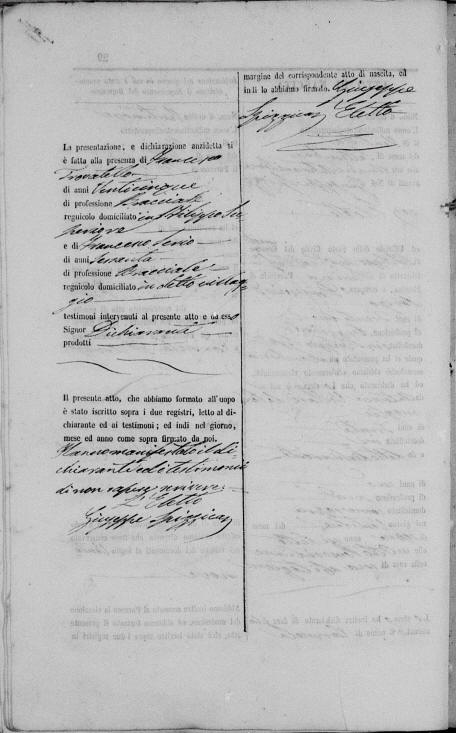 La presentazione, e dichiarazione anzidetta si
è fatta alla presenza di
Trovatello
di anni Venticinque
di professione Bracciale
regnicolo domiciliato in S Filippo Su
periore
e di Francesco
di anni Sessanta
di professione Bracciale
regnicolo domiciliato in detto villag
gio
testimoni intervenuti al presente atto e da esso
Signor Dichiarante
prodotti
Il presente atto, che abbiamo formato all'uopo
è stato iscritto sopra i due registri, letto al di-
chiarante ed ai testimoni; ed indi nel giorno,
mese ed anno come sopra firmato da noi.
Hanno manifestato il di
chiarante ed i testimoni
di non sapere scrivere
L'Eletto
Giuseppe
margine del corrispondente atto di nascita, ed
indi lo abbiamo firmato. Giuseppe
Eletto